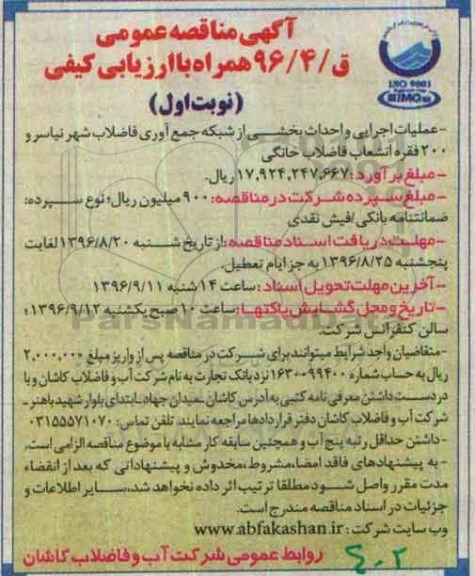 آگهی مناقصه عمومی
ق/۹۶/۴ همراه با ارزیابی کیفی
(نوبت اول)
ISO 9001
IMQ
- عملیات اجرایی و احداث بخشی از شبکه جمع آوری فاضلاب شهر نیاسر و
۲۰۰ فقره انشعاب فاضلاب خانگی
- مبلغ برآورد: ۱۷,۹۲۴,۲۴۷,۶۶۷ ریال.
- مبلغ سپرده شرکت در مناقصه: ۹۰۰ میلیون ریال؛ نوع سپرده:
ضمانتنامه بانکی/فیش نقدی
- مهلت دریافت اسناد مناقصه: از تاریخ شنبه ۱۳۹۶/۸/۲۰ لغایت
پنجشنبه ۱۳۹۶/۸/۲۵ به جز ایام تعطیل.
- آخرین مهلت تحویل اسناد: ساعت ۱۴ شنبه ۱۳۹۶/۹/۱۱
- تاریخ و محل گشایش پاکتها: ساعت ۱۰ صبح یکشنبه ۱۳۹۶/۹/۱۲؛
سالن کنفرانس شرکت.
- متقاضیان واجد شرایط میتوانند برای شرکت در مناقصه پس از واریز مبلغ ۲,۰۰۰,۰۰۰
ریال به حساب شماره ۱۶۳۰۰۹۹۴۰۰ نزد بانک تجارت به نام شرکت آب و فاضلاب کاشان و با
در دست داشتن معرفی نامه کتبی به آدرس کاشان، میدان جهاد، ابتدای بلوار شهید باهنر-
شرکت آب و فاضلاب کاشان دفتر قراردادها مراجعه نمایند. تلفن تماس: ۰۳۱۵۵۵۷۱۰۷۰
- داشتن حداقل رتبه پنج آب و همچنین سابقه کار مشابه با موضوع مناقصه الزامی است.
- به پیشنهادهای فاقد امضاء، مشروط، مخدوش و پیشنهاداتی که بعد از انقضاء
مدت مقرر واصل شود مطلقا ترتیب اثر داده نخواهد شد، سایر اطلاعات و
جزئیات در اسناد مناقصه مندرج است.
وب سایت شرکت: www.abfakashan.ir
روابط عمومی شرکت آب و فاضلاب کاشان
۴۰۲